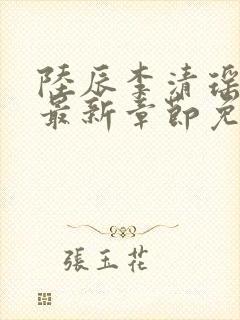 陸辰李清瑶
最新章節免
張玉花